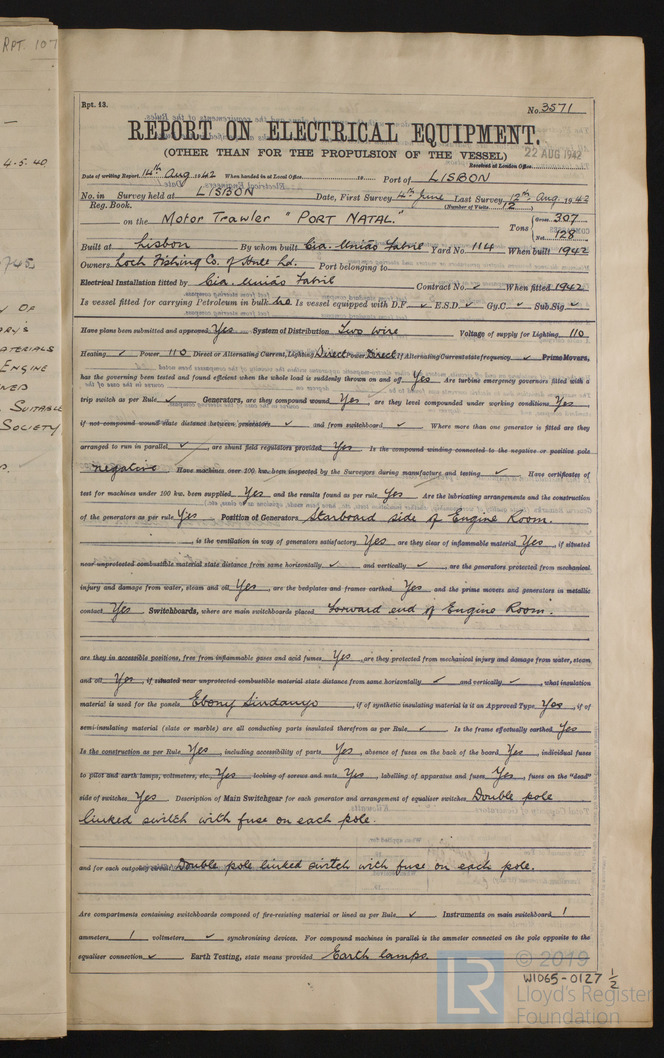 RPT. 107
4.5.40
Y OF
ARY'S
ATERIALS
ENGINE
SUITABLE
SOCIETY
Rpt. 13.
No. 3571
REPORT ON ELECTRICAL EQUIPMENT.
(OTHER THAN FOR THE PROPULSION OF THE VESSEL)
22 AUG 1942
Received at London Office
Date of writing Report 14th Aug 1942 When handed in at Local Office 19 Port of LISBON
No. in Survey held at LISBON Date, First Survey 4th June Last Survey 12th Aug. 1942
Reg. Book. (Number of Visits 12)
on the Motor Trawler "PORT NATAL." Tons Gross 307
Net 128
Built at Lisbon By whom built Cia. União Fabril Yard No. 114 When built 1942
Owners Loch Fishing Co. of Hull Ld. Port belonging to
Electrical Installation fitted by Cia. União Fabril Contract No. ✓ When fitted 1942
Is vessel fitted for carrying Petroleum in bulk no Is vessel equipped with D.F. ✓ E.S.D. ✓ Gy.C ✓ Sub.Sig. ✓
Have plans been submitted and approved Yes System of Distribution Two wire Voltage of supply for Lighting 110
Heating ✓ Power 110 Direct or Alternating Current, Lighting Direct Power Direct If Alternating Current state frequency ✓ Prime Movers,
has the governing been tested and found efficient when the whole load is suddenly thrown on and off Yes Are turbine emergency governors fitted with a
trip switch as per Rule ✓ Generators, are they compound wound Yes, are they level compounded under working conditions Yes,
if not compound wound state distance between generators ✓ and from switchboard ✓ Where more than one generator is fitted are they
arranged to run in parallel ✓, are shunt field regulators provided Yes Is the compound winding connected to the negative or positive pole
negative Have machines over 100 kw. been inspected by the Surveyors during manufacture and testing ✓ Have certificates of
test for machines under 100 kw. been supplied Yes and the results found as per rule Yes Are the lubricating arrangements and the construction
of the generators as per rule Yes Position of Generators Starboard side of Engine Room.
, is the ventilation in way of generators satisfactory Yes are they clear of inflammable material Yes, if situated
near unprotected combustible material state distance from same horizontally ✓ and vertically ✓, are the generators protected from mechanical
injury and damage from water, steam and oil Yes, are the bedplates and frames earthed Yes and the prime movers and generators in metallic
contact Yes Switchboards, where are main switchboards placed Forward end of Engine Room.
are they in accessible positions, free from inflammable gases and acid fumes Yes, are they protected from mechanical injury and damage from water, steam
and oil Yes, if situated near unprotected combustible material state distance from same horizontally ✓ and vertically ✓, what insulation
material is used for the panels Ebony Sindanyo, if of synthetic insulating material is it an Approved Type Yes, if of
semi-insulating material (slate or marble) are all conducting parts insulated therefrom as per Rule ✓ Is the frame effectually earthed Yes
Is the construction as per Rule Yes, including accessibility of parts Yes, absence of fuses on the back of the board Yes, individual fuses
to pilot and earth lamps, voltmeters, etc. Yes locking of screws and nuts Yes, labelling of apparatus and fuses Yes, fuses on the "dead"
side of switches Yes Description of Main Switchgear for each generator and arrangement of equaliser switches Double pole
linked switch with fuse on each pole.
and for each outgoing circuit Double pole linked switch with fuse on each pole.
Are compartments containing switchboards composed of fire-resisting material or lined as per Rule ✓ Instruments on main switchboard 1
ammeters 1 voltmeters ✓ synchronising devices. For compound machines in parallel is the ammeter connected on the pole opposite to the
equaliser connection ✓ Earth Testing, state means provided Earth lamps.
© 2019
W1065-0127 1/2
LR Lloyd's Register
Foundation